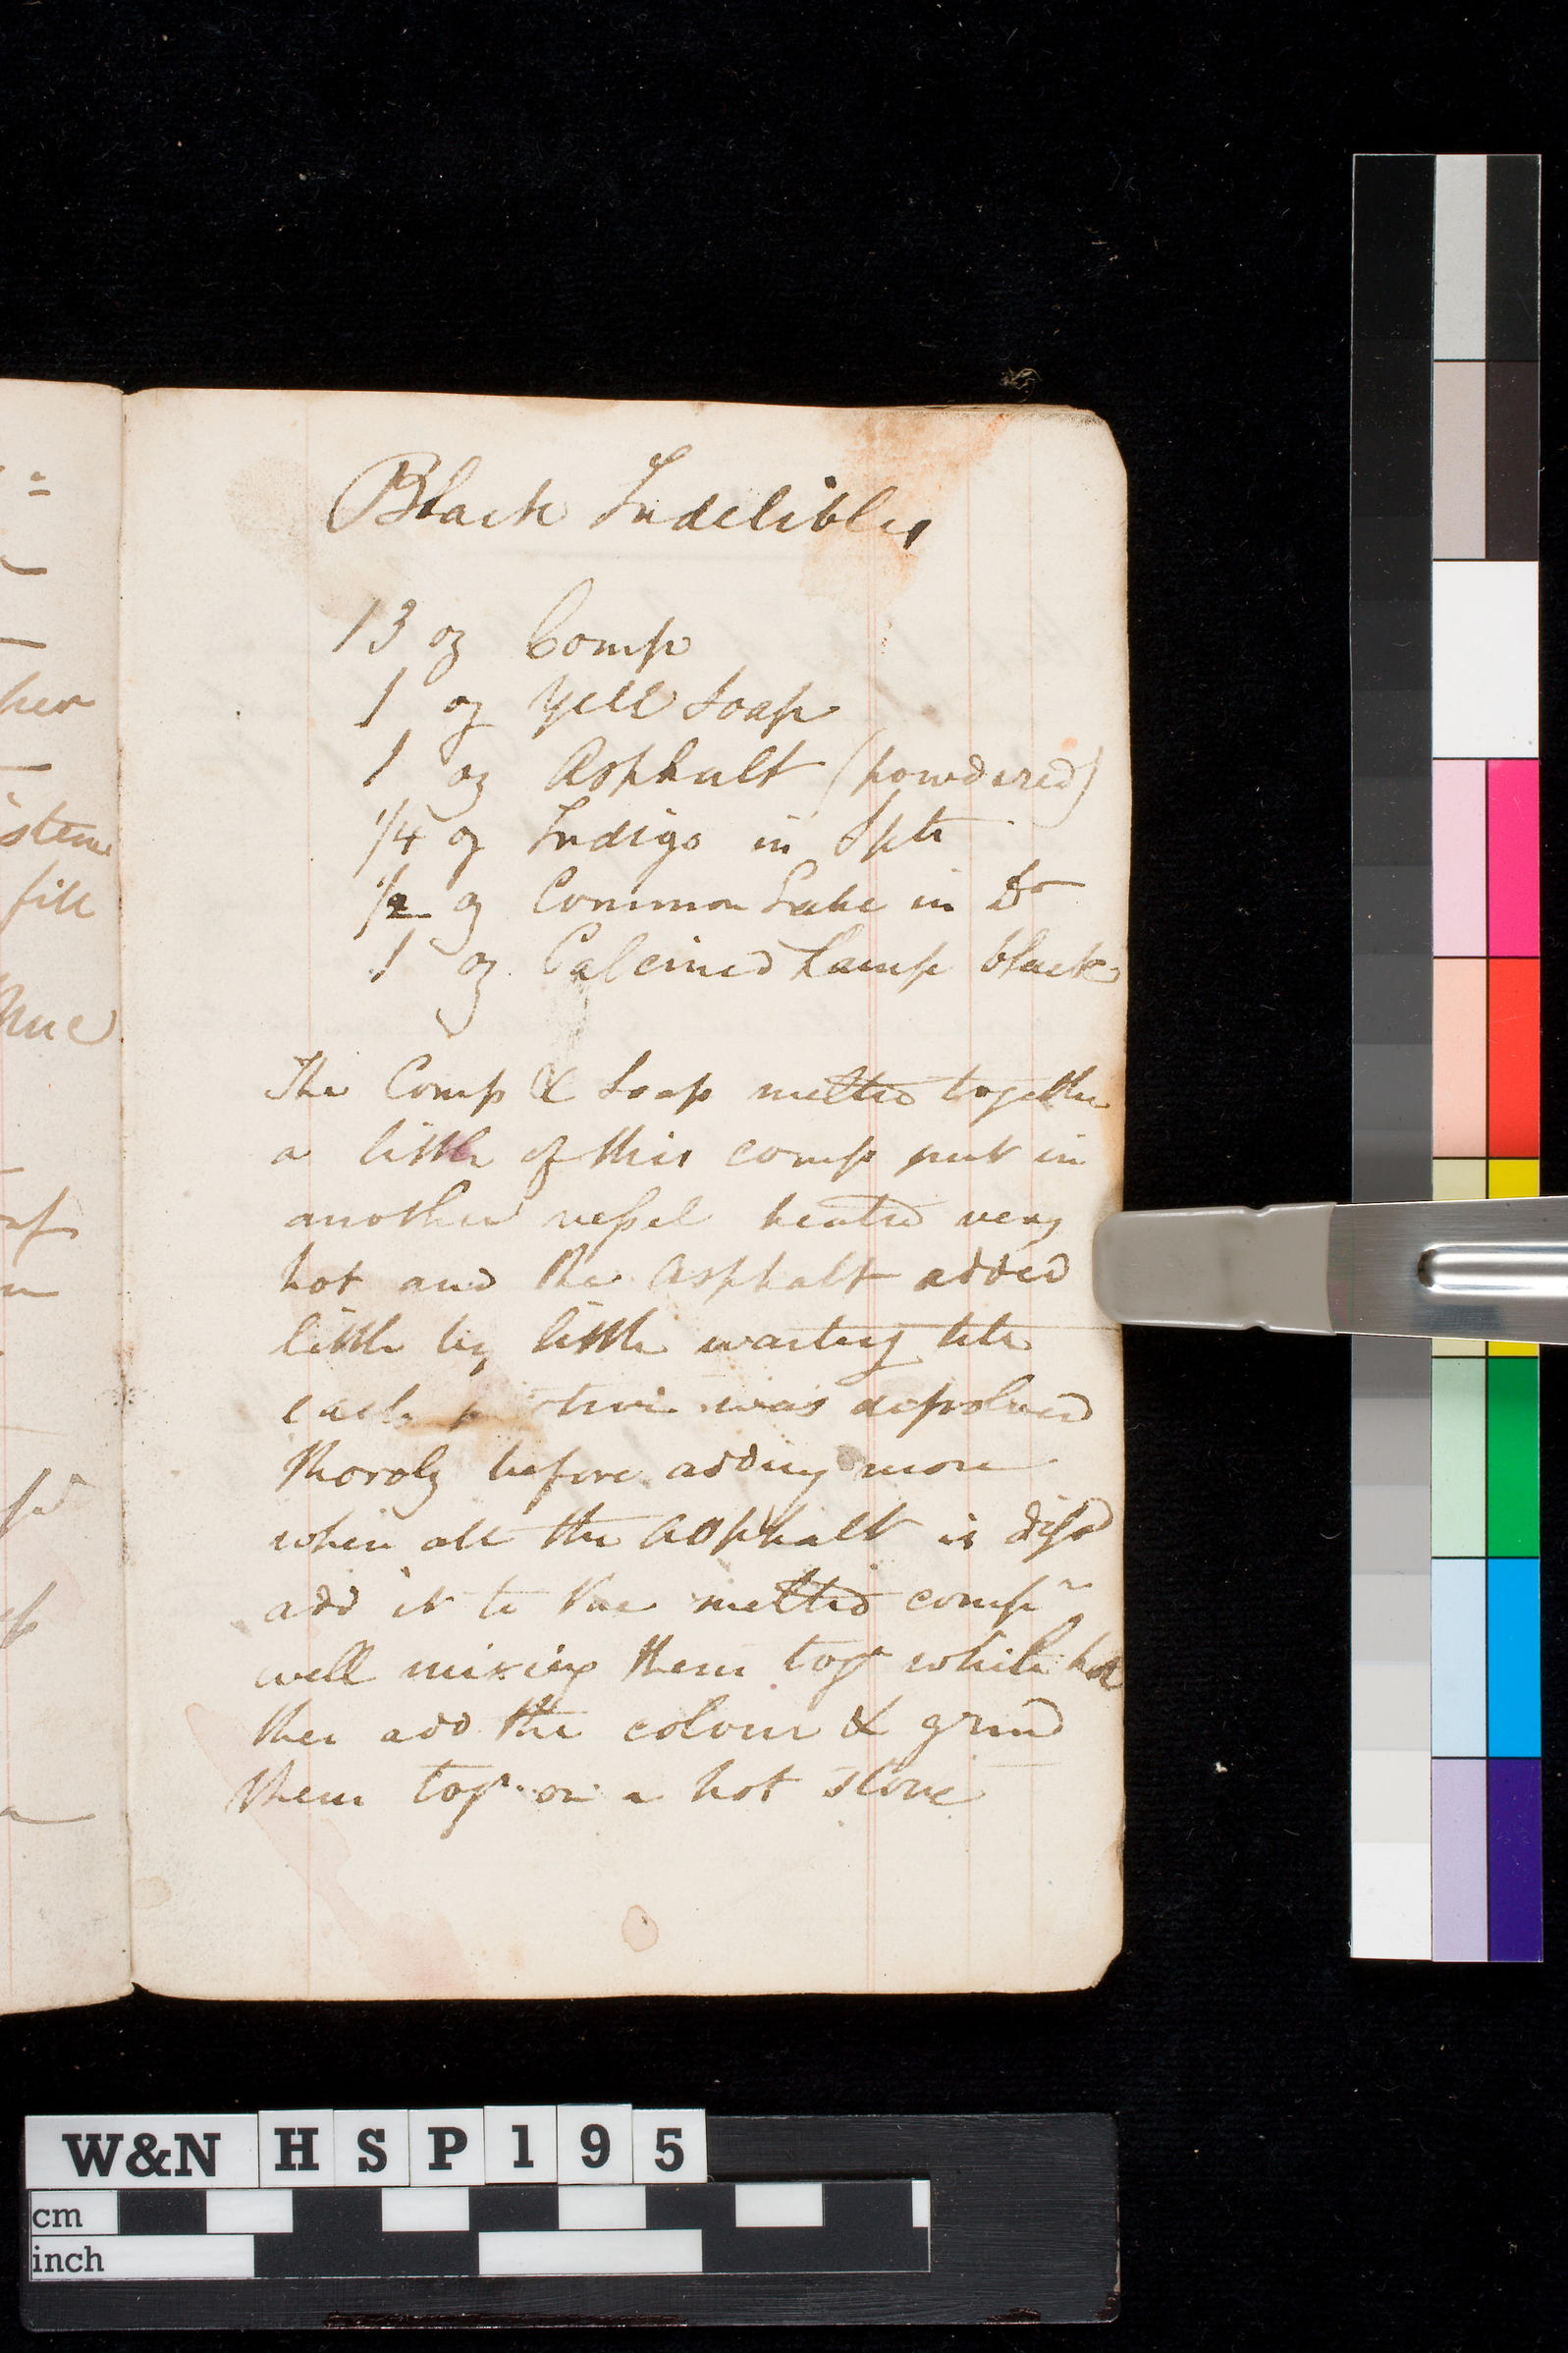 Black Indelibles
13 oz Comp
1 oz Yell Soap
1 oz Asphalt (powdered)
1/4 oz Indigo in Spts
1/2 oz Common Lake in Do
1 oz Calcined Lamp black
The Comp & Soap melted together
a little of this comp put in
another vessel heated very
hot and the Asphalt added
little by little waiting till
each was dissolved
thoroly before adding more
when all the Asphalt is dissd
add it to the melted compn
well mixing them togr while hot
then add the colour & grind
them togr on a hot stone
her
fill
W&N HSP195
cm
inch